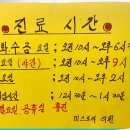 진료시간
화수금 요일 : 오전 10시 ~ 오후 6시
요일 (야간) : 오전 10시 ~ 오후 9시
요일 : 오전 10시 ~ 오후
점심시간 : 12시 30분 ~ 1시 30분
일요일 공휴일 휴진
미스코의원